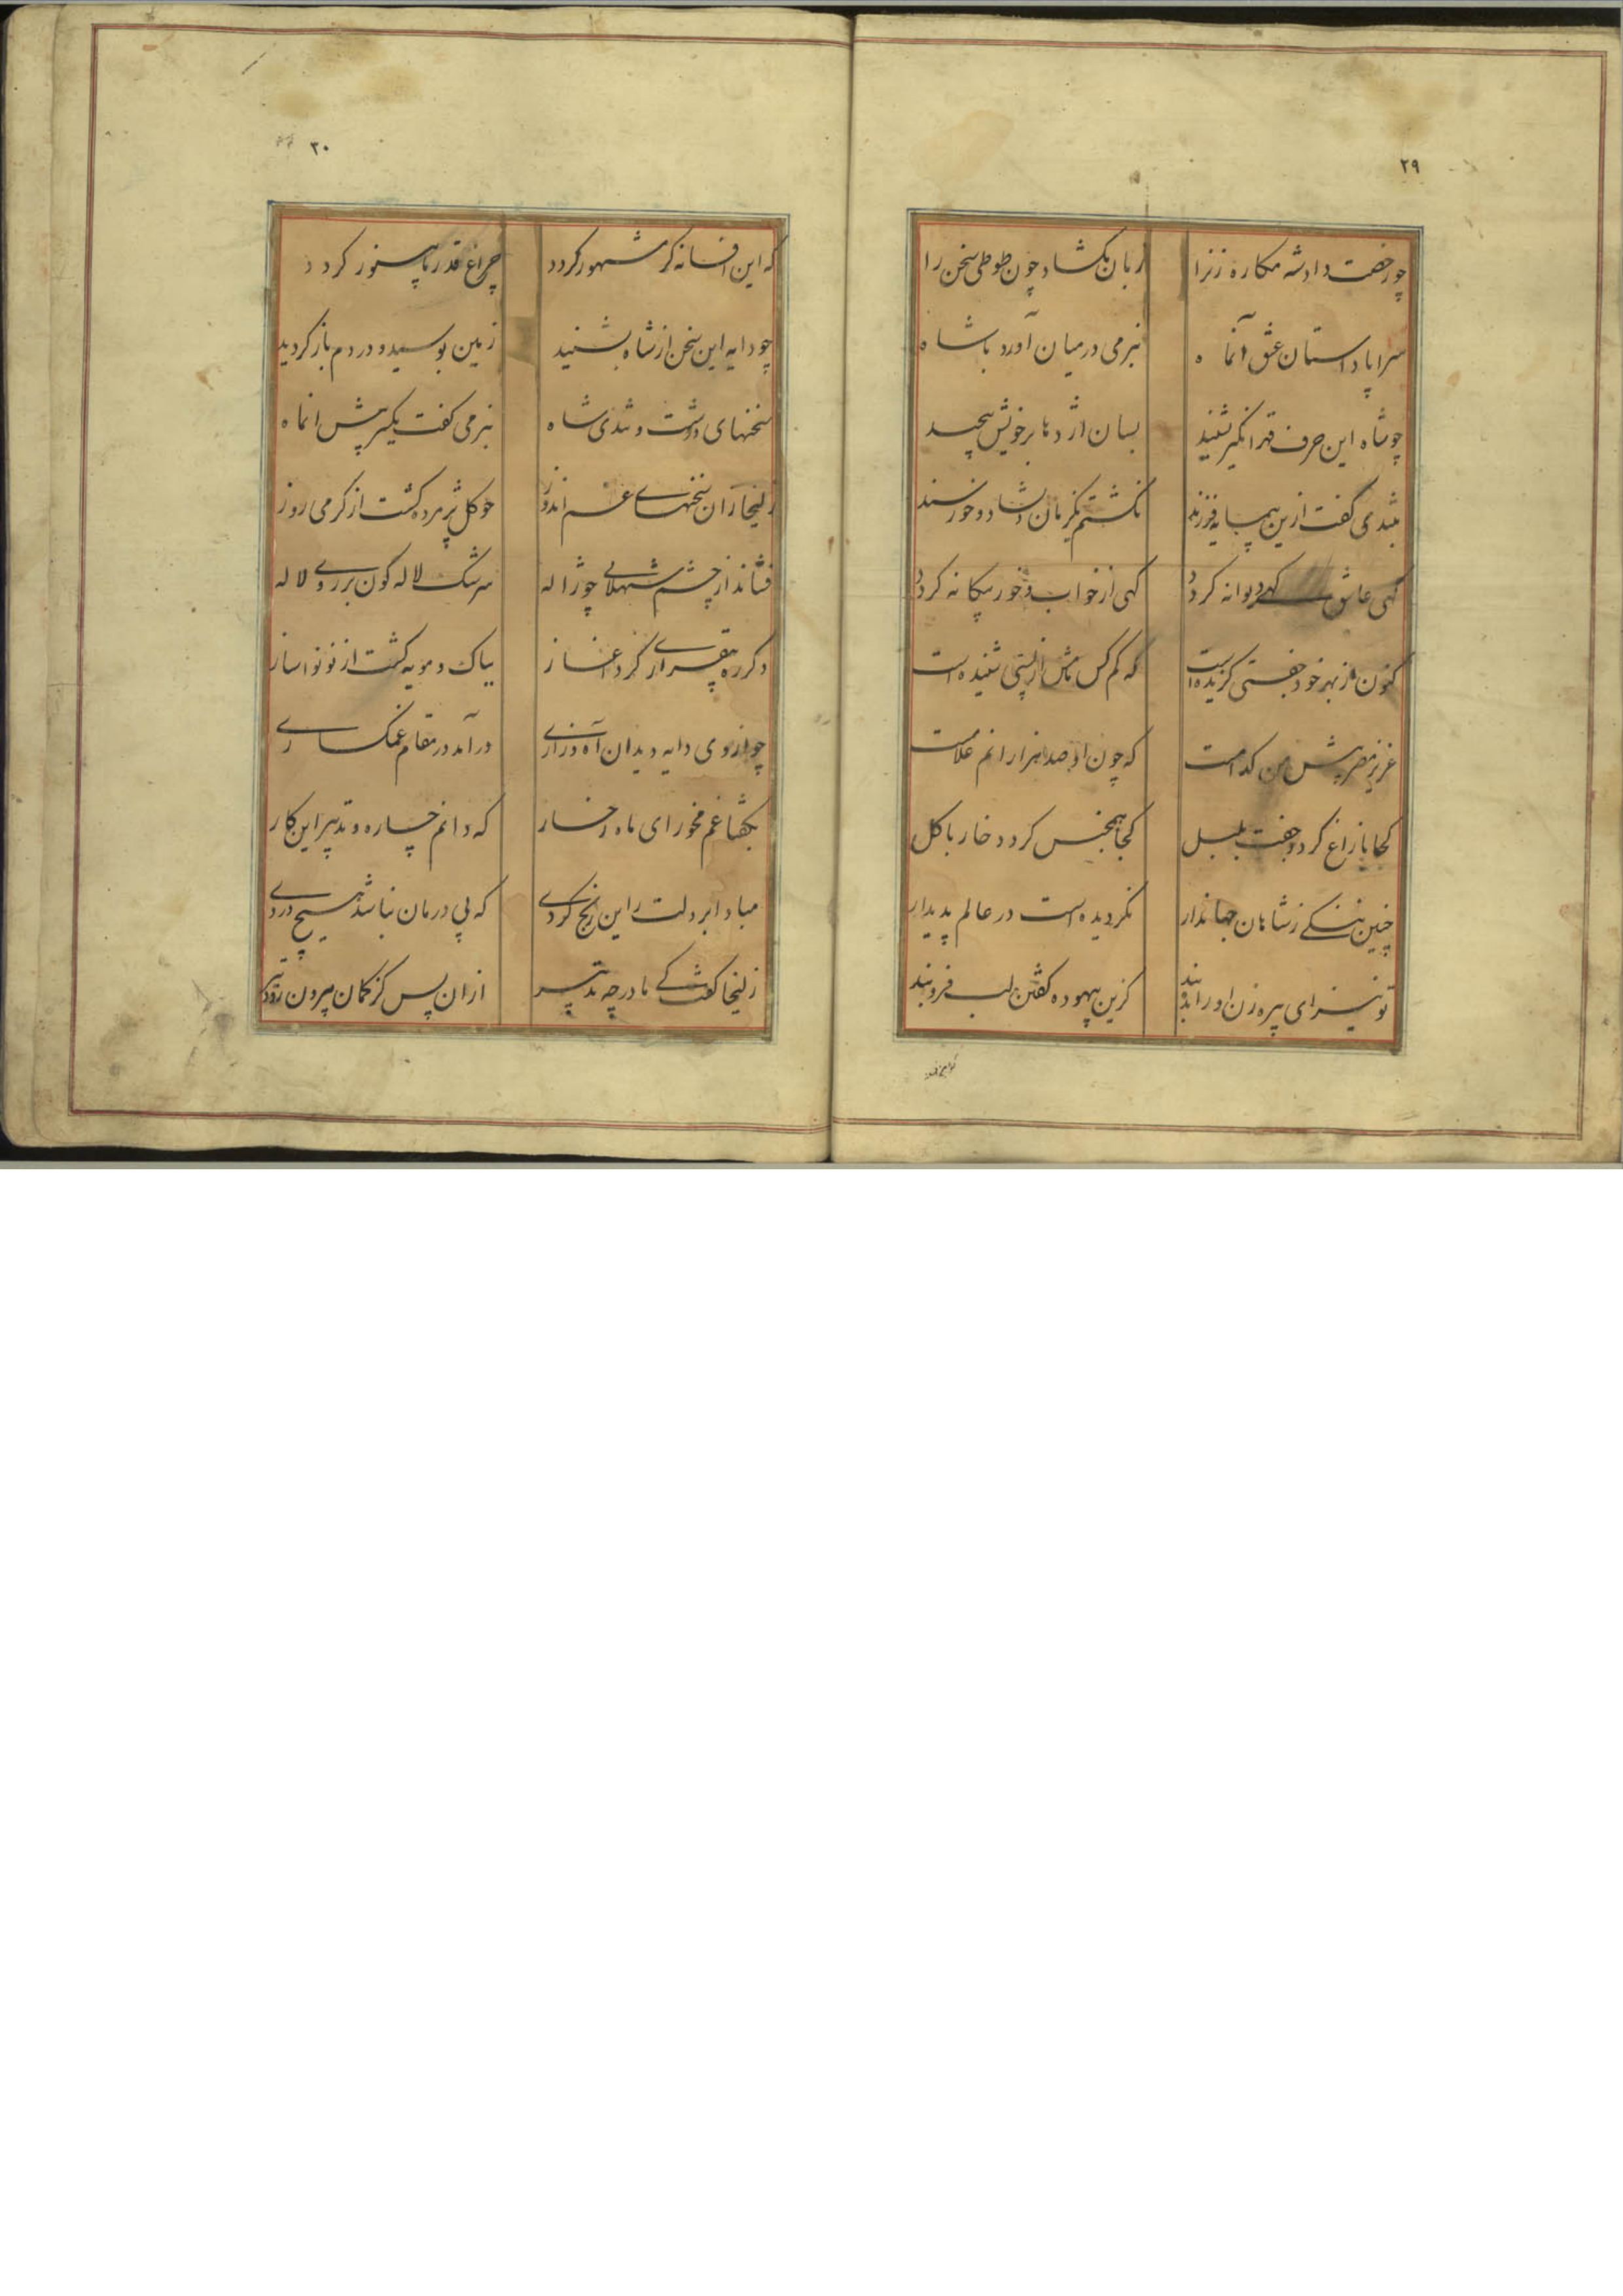 ۲۹
چو رخصت داد شه مکاره زنرا زبان بکشاد چون طوطی سخن را
سراپا داستان عشق آنماه بنرمی در میان آورد با شاه
چو شاه این حرف قهر انکیز بشنید بسان اژدها بر خویش پیچید
بتندی کفت ازین فرزند نکشتم یکزمان دلشاد و خورسند
کهی عاشق کهی دیوانه کردد کهی از خواب و خور بیکانه کردد
کنون از بهر خود جفتی کزیده است که کم کس نامش از پستی شنیده است
عزیز مصر پیش من کدامست که چون او صد هزارانم غلامست
کجا با زاغ کردد جفت بلبل کجا همجنس کردد خار با کل
چنین ننکی ز شاهان جهاندار نکردیده است در عالم پدیدار
تو نیز ای پیره زن او را بده پند کزین بیهوده کفتن لب فرو بند
۳۰
که این افسانه کر مشهور کردد چراغ قدر ما بینور کردد
چو دایه این سخن از شاه بشنید زمین بوسید و در دم باز کردید
سخنهای درشت و تندی شاه بنرمی کفت یکسر پیش انماه
زلیخا زان سخنهای غم اندوز چو کل پژمرده کشت از کرمی روز
فشاند از چشم شهلایی چو ژاله سرشک لاله کون بر روی لاله
دکر ره بیقراری کرد اغاز بباک و مویه کشت از نو نواساز
چو از وی دایه دید ان آه و زاری در آمد در مقام غمکساری
بکفتا غم مخور ای ماه رخسار که دانم چاره و تدبیر این کار
مبادا بر دلت زاین رنج کردی که بی درمان نباشد هیچ دردی
زلیخا کفت کی مادر چه تدبیر ازان پس کز کمان بیرون رود تیر